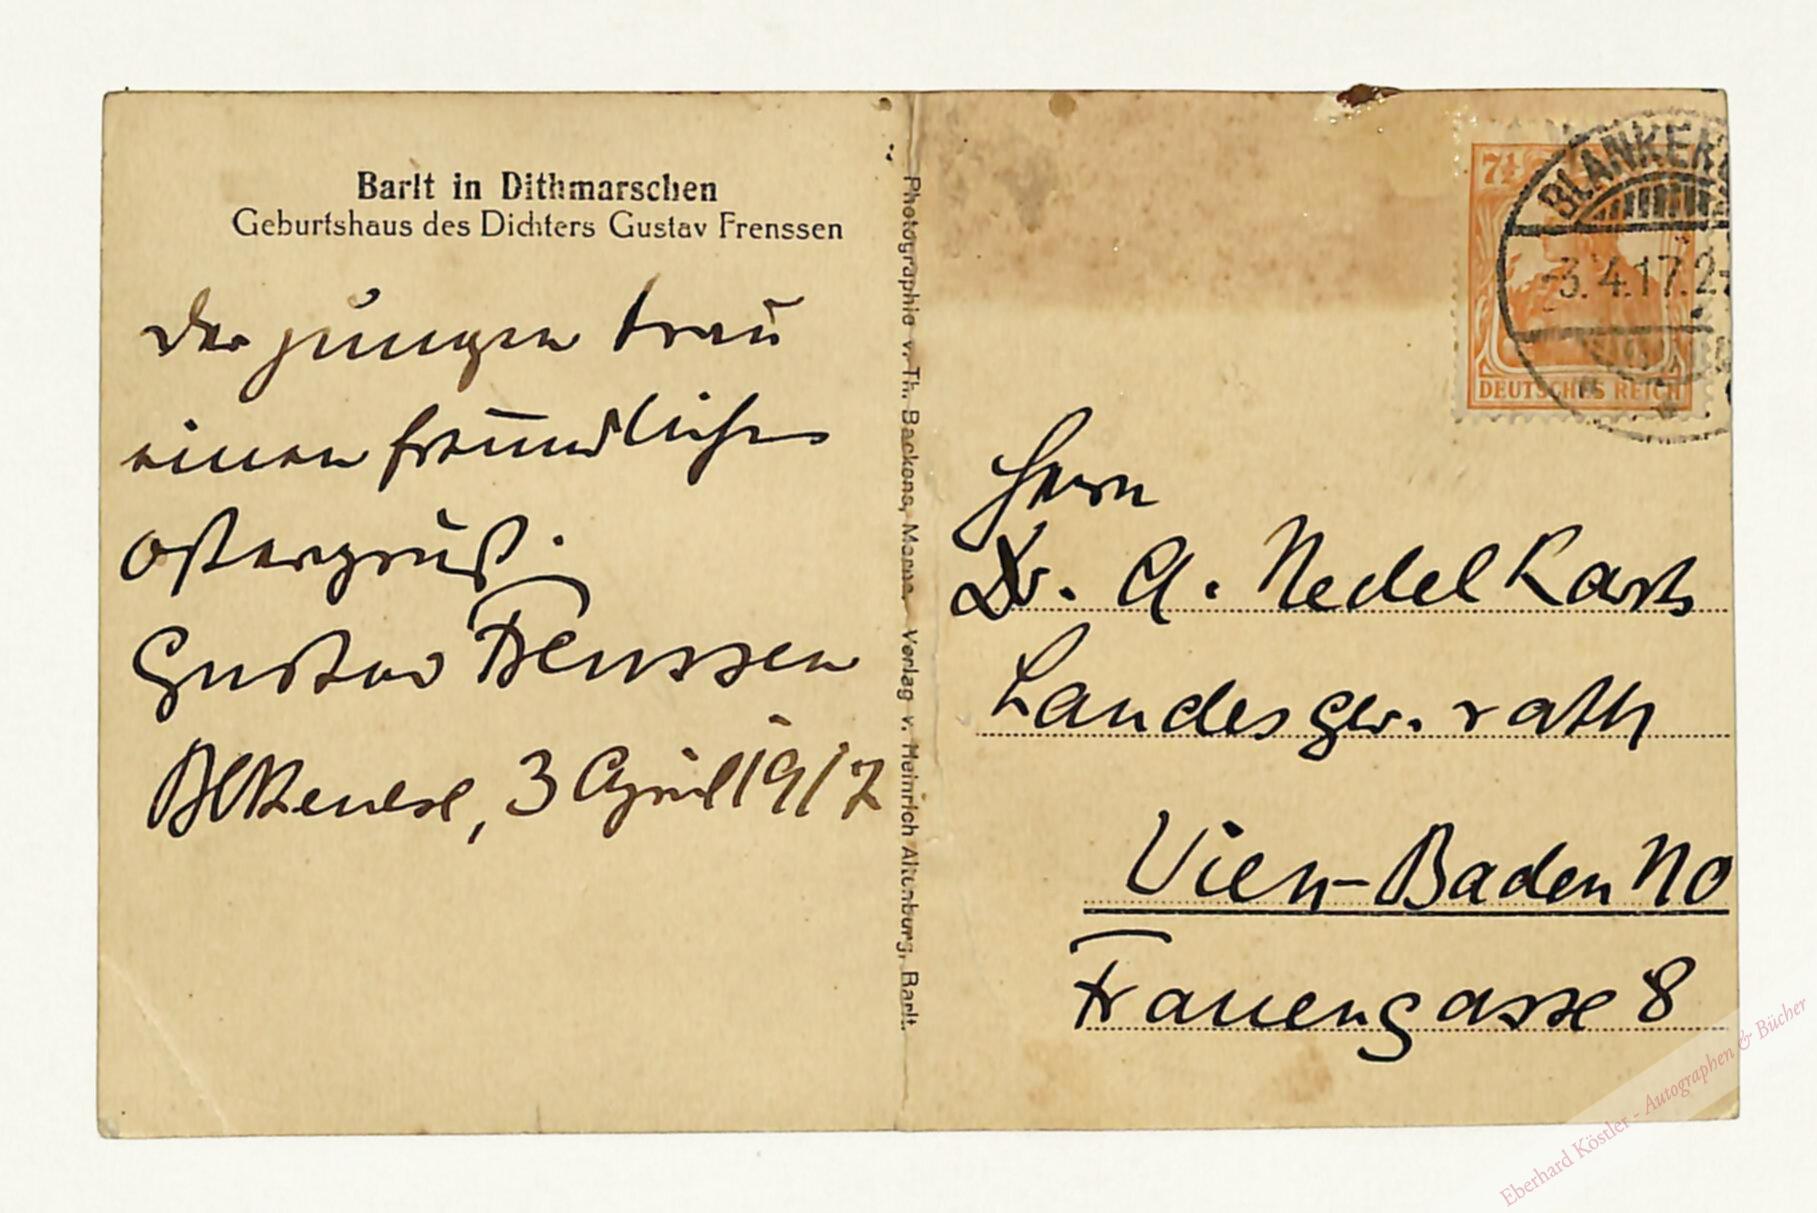 Barlt in Dithmarschen
Geburtshaus des Dichters Gustav Frenssen
Der jungen Frau
einen freundlichen
Ostergruß.
Gustav Frenssen
Blkenese, 3 April 1917
Photographie v. Th. Backens, Marne. Verlag v. Heinrich Altenburg, Barlt.
7½
DEUTSCHES REICH
BLANKEN
-3.4.17.2-
Herrn
Dr. A. Nedel
Landesger.rath
Wien-Baden NO
Frauengasse 8
Eberhard Köstler - Autographen & Bücher